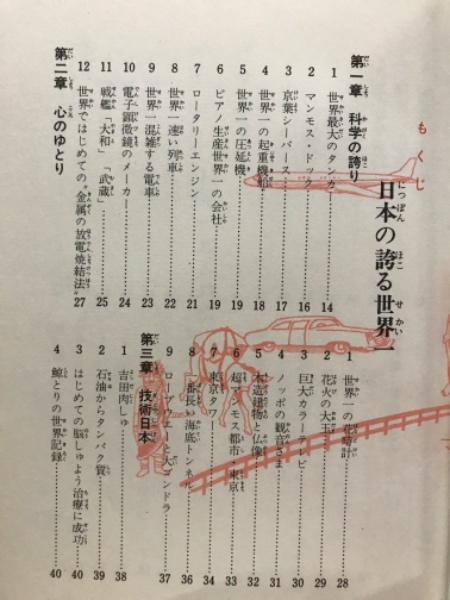 もくじ
日本の誇る世界一
第一章　科学の誇り
1　世界最大のタンカー……14
2　マンモス・ドック……16
3　京葉シーバース……17
4　世界一の起重機船……18
5　世界一の圧延機……19
6　ピアノ生産世界一の会社……19
7　ロータリーエンジン……21
8　世界一速い列車……22
9　世界一混雑する電車……23
10　電子顕微鏡のメーカー……24
11　戦艦「大和」「武蔵」……25
12　世界ではじめての“金属の放電焼結法”……27
第二章　心のゆとり
1　世界一の花時計……28
2　花火の大玉……29
3　巨大カラーテレビ……30
4　ノッポの観音さま……31
5　木造建物と仏像……32
6　超マンモス都市・東京……33
7　東京タワー……34
8　一番長い海底トンネル……36
9　ロープウエーと大ゴンドラ……37
第三章　技術日本
1　吉田肉しゅ……38
2　石油からタンパク質……39
3　はじめての脳しゅよう治療に成功……40
4　鯨とりの世界記録……40